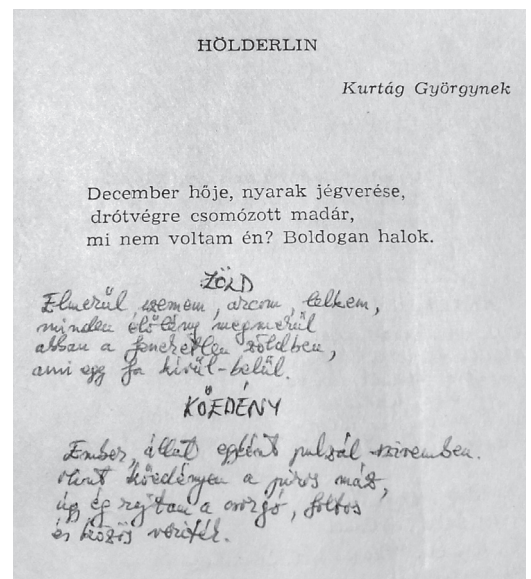 HÖLDERLIN
Kurtág Györgynek
December hője, nyarak jégverése,
drótvégre csomózott madár,
mi nem voltam én? Boldogan halok.
ZÖLD
Elmerül szemem, arcom, lelkem,
minden élőlény megmerül
abban a feneketlen zöldben,
ami egy fa kívül-belül.
KŐEDÉNY
Ember, állat egként pulzál szivemben.
Mint kőedényen a piros máz,
úgy ég rajtam a csorgó, foltos
és közös veríték.